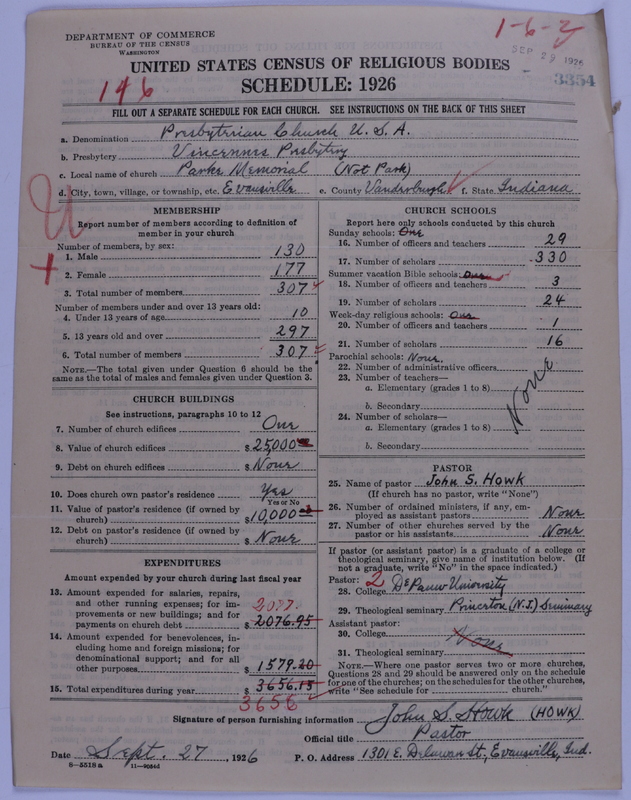 DEPARTMENT OF COMMERCE
BUREAU OF THE CENSUS
WASHINGTON
1-6-2
SEP 29 1926
3354
UNITED STATES CENSUS OF RELIGIOUS BODIES
SCHEDULE: 1926
146
FILL OUT A SEPARATE SCHEDULE FOR EACH CHURCH. SEE INSTRUCTIONS ON THE BACK OF THIS SHEET
a. Denomination Presbyterian Church U. S. A.
b. Presbytery Vincennes Presbytery
c. Local name of church Parke Memorial (Not Park)
d. City, town, village, or township, etc. Evansville e. County Vanderburgh f. State Indiana
MEMBERSHIP
Report number of members according to definition of
member in your church
Number of members, by sex:
1. Male 130
2. Female 177
3. Total number of members 307
Number of members under and over 13 years old:
4. Under 13 years of age 10
5. 13 years old and over 297
6. Total number of members 307
NOTE.—The total given under Question 6 should be the
same as the total of males and females given under Question 3.
CHURCH BUILDINGS
See instructions, paragraphs 10 to 12
7. Number of church edifices One
8. Value of church edifices $25,000
9. Debt on church edifices $ None
10. Does church own pastor's residence Yes
Yes or No
11. Value of pastor's residence (if owned by
church) $10,000
12. Debt on pastor's residence (if owned by
church) $ None
EXPENDITURES
Amount expended by your church during last fiscal year
13. Amount expended for salaries, repairs,
and other running expenses; for im-
provements or new buildings; and for
payments on church debt $ 2076.95
2077
14. Amount expended for benevolences, in-
cluding home and foreign missions; for
denominational support; and for all
other purposes $ 1579.20
15. Total expenditures during year $ 3656.15
3656
CHURCH SCHOOLS
Report here only schools conducted by this church
Sunday schools: One
16. Number of officers and teachers 29
17. Number of scholars 330
Summer vacation Bible schools: One
18. Number of officers and teachers 3
19. Number of scholars 24
Week-day religious schools: One
20. Number of officers and teachers 1
21. Number of scholars 16
Parochial schools: None.
22. Number of administrative officers
23. Number of teachers—
a. Elementary (grades 1 to 8)
b. Secondary
24. Number of scholars—
a. Elementary (grades 1 to 8)
b. Secondary
None
PASTOR
25. Name of pastor John S. Howk
(If church has no pastor, write "None")
26. Number of ordained ministers, if any, em-
ployed as assistant pastors None
27. Number of other churches served by the
pastor or his assistants None
If pastor (or assistant pastor) is a graduate of a college or
theological seminary, give name of institution below. (If
not a graduate, write "No" in the space indicated.)
Pastor: 2
28. College DePauw University
29. Theological seminary Princeton (N.J.) Seminary
Assistant pastor:
30. College None
31. Theological seminary
NOTE.—Where one pastor serves two or more churches,
Questions 28 and 29 should be answered only on the schedule
for one of the churches; on the schedules for the other churches,
write "See schedule for church."
Signature of person furnishing information John S. Howk (HOWK)
Official title Pastor
Date Sept. 27, 1926 P. O. Address 1301 E. Delaware St., Evansville, Ind.
8—5518 a